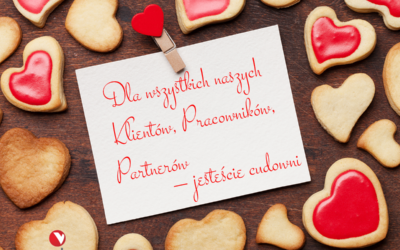 Dla wszystkich naszych
Klientów, Pracowników,
Partnerów
– jesteście cudowni